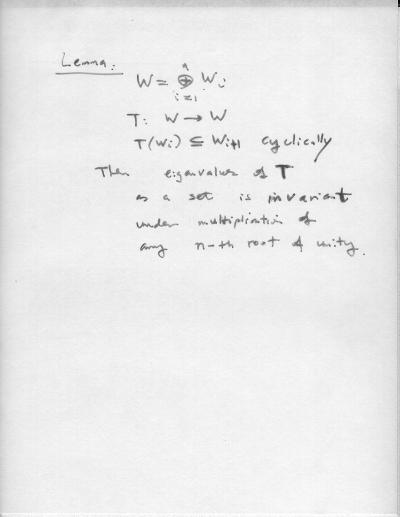 Lemma:
W = ⊕ᵢ₌₁ⁿ Wᵢ
T: W → W
T(Wᵢ) ⊆ Wᵢ₊₁ cyclically
Then eigenvalues of T
as a set is invariant
under multiplication of
any n-th root of unity.